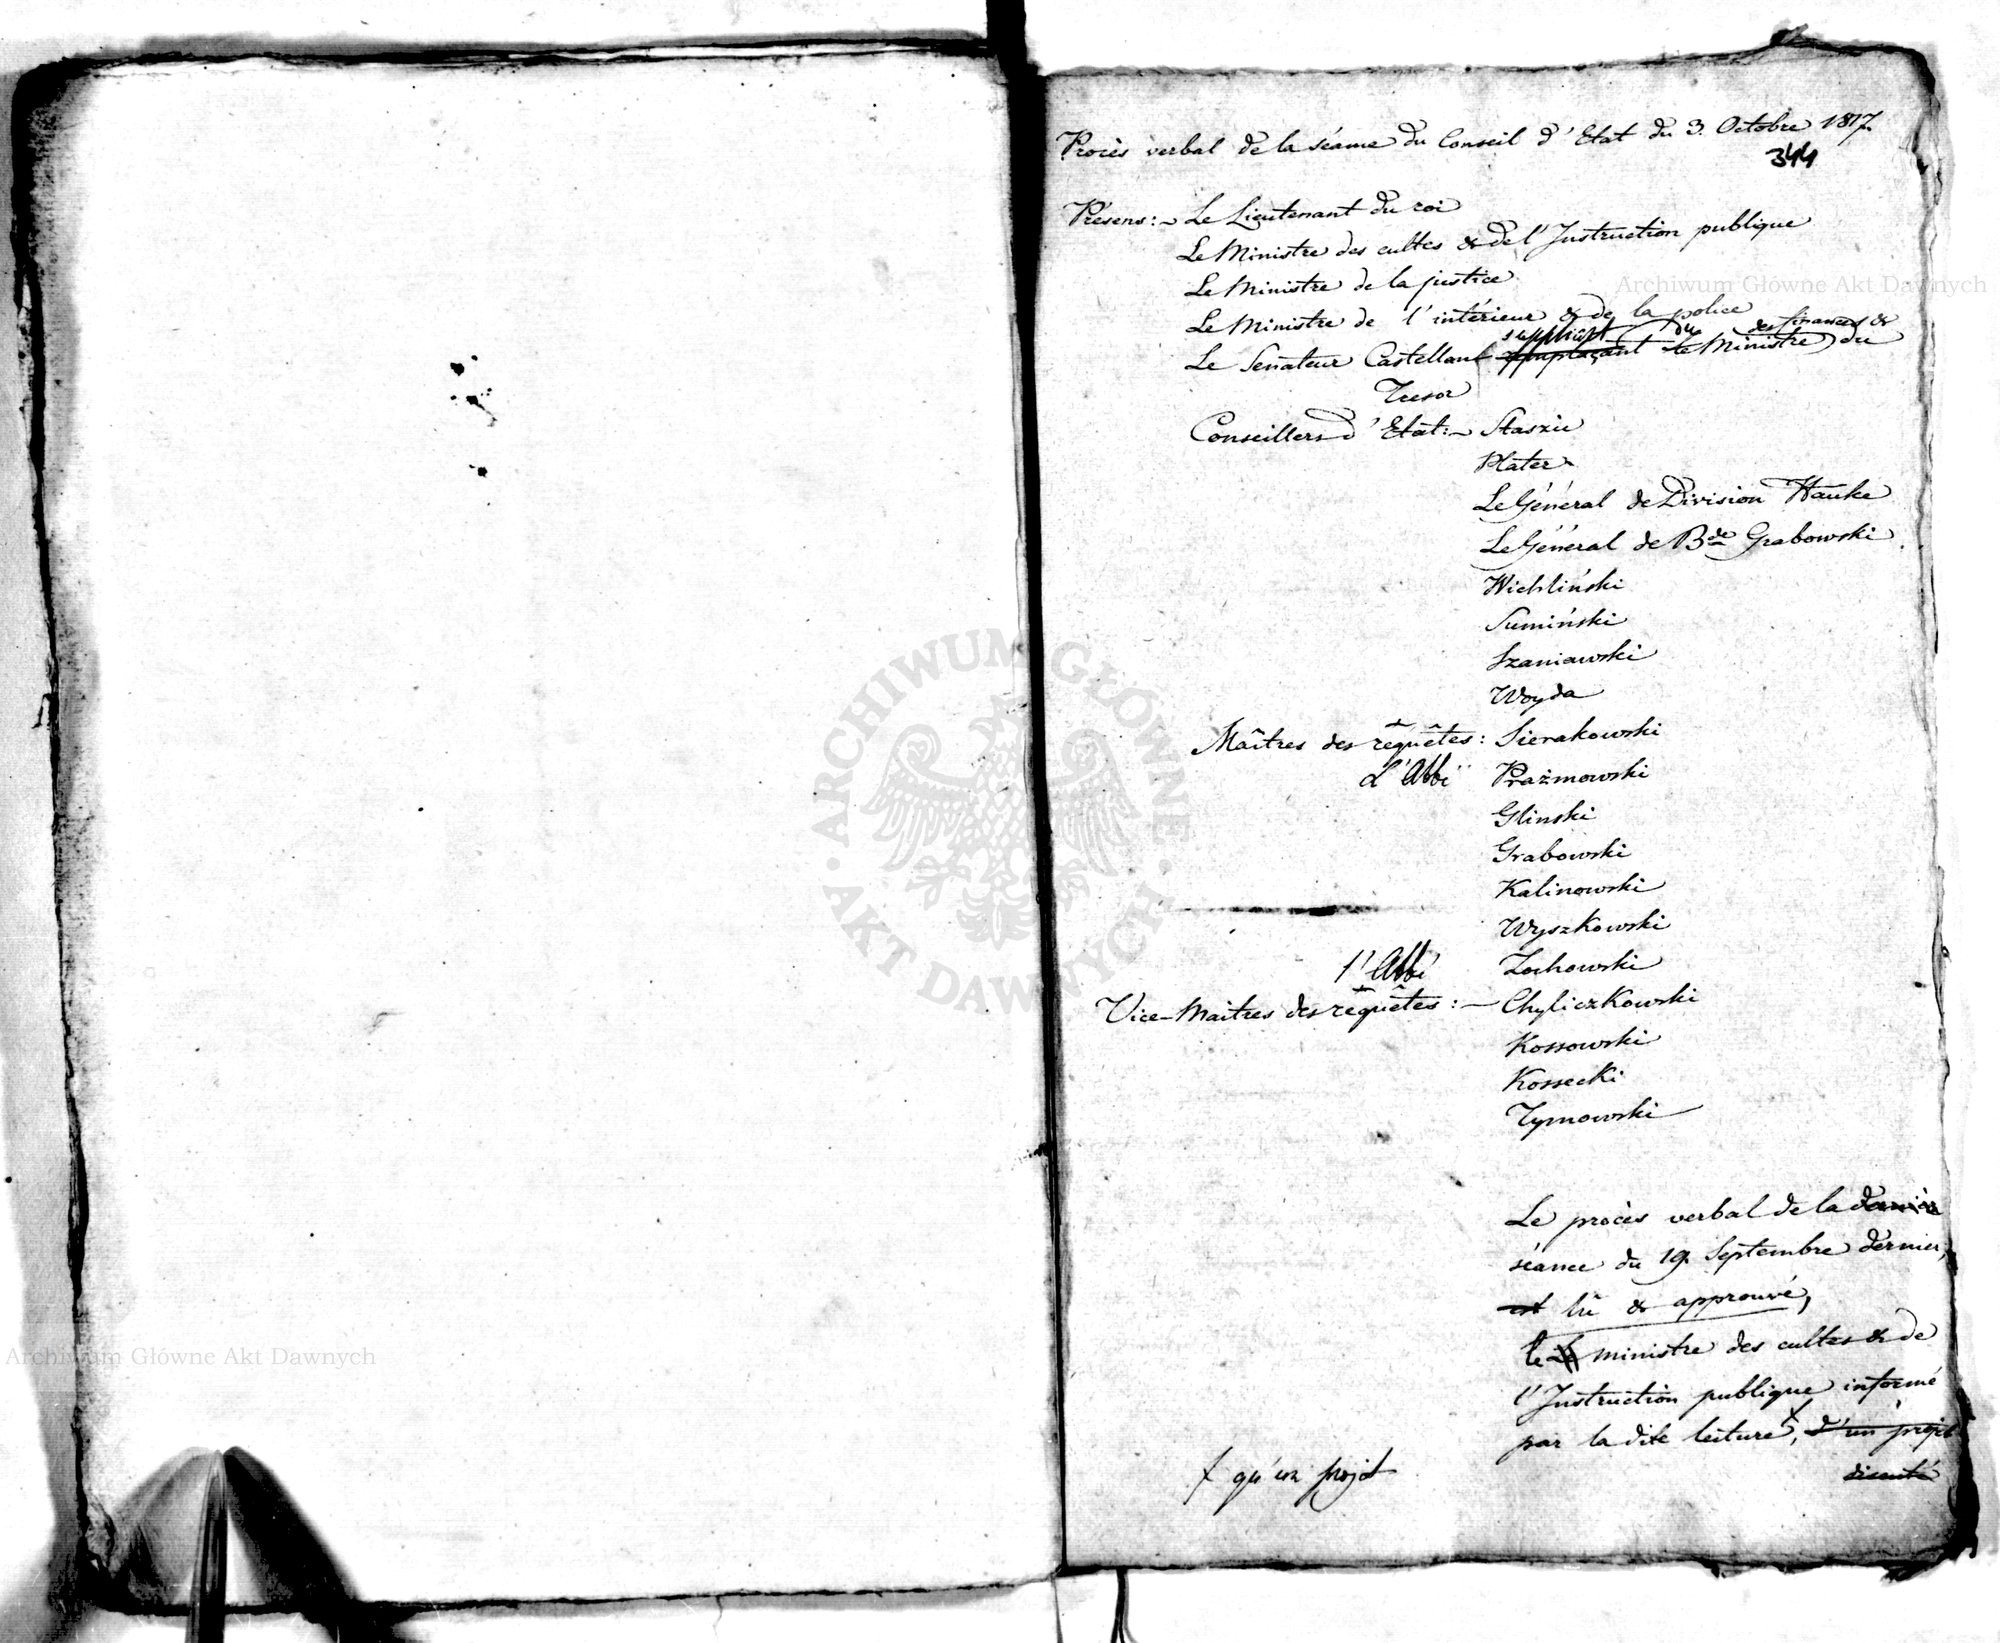 Procès verbal de la séance du Conseil d'Etat du 3. Octobre 1817.
344
Présens:- Le Lieutenant du roi
Le Ministre des cultes & de l'Instruction publique
Le Ministre de la justice
Le Ministre de l'intérieur & de la police
suppléant du des finances &
Le Senateur Castellant remplaçant le Ministre du
Tresor
Conseillers d'Etat:- Staszic
Plater
Le Général de Division Hauke
Le Général de Bde Grabowski
Wichliński
Sumiński
Szaniawski
Woyda
Maîtres des requêtes: Sierakowski
L'Abbé Prażmowski
Glinski
Grabowski
Kalinowski
Wyszkowski
l'Abbé Zochowski
Vice-Maitres des requêtes:- Chyliczkowski
Kossowski
Kossecki
Tymowski
Le procès verbal de la dernière
séance du 19. Septembre dernier,
est lû & approuvé,
le Le ministre des cultes & de
l'Instruction publique informé
par la dite lecture, d'un projet
discuté
qu'un projet
Archiwum Główne Akt Dawnych
Archiwum Główne Akt Dawnych
ARCHIWUM GŁÓWNE · AKT DAWNYCH ·